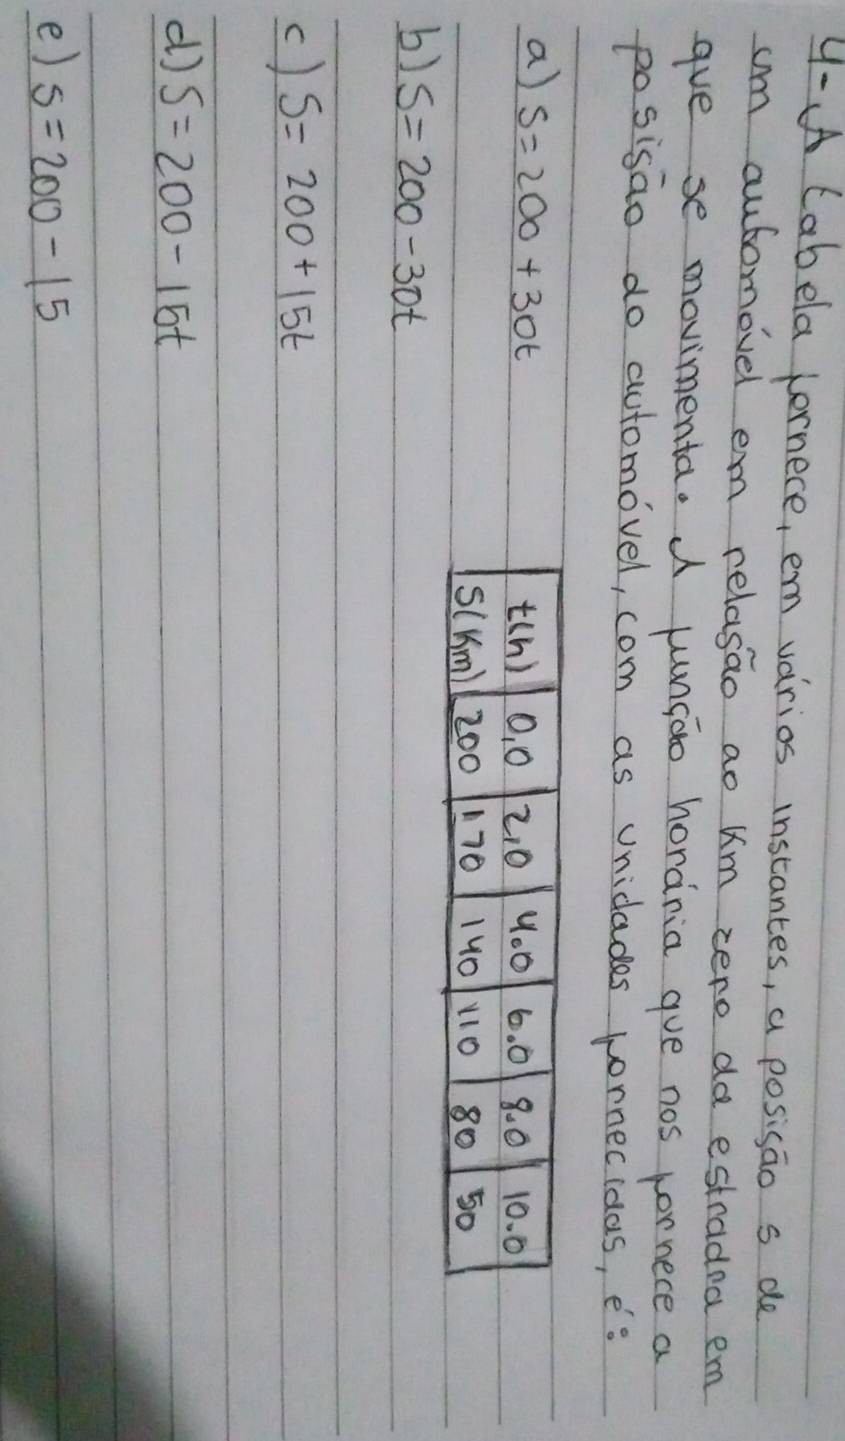 4-A tabela fornece, em vários instantes, a posisão s de
um automóvel em relasão ao Km zero da estradra em
que se movimenta. A função horária que nos fornece a
posisão do automóvel, com as unidades fornecidas, é:
a) S=200+30t
t(h) 0,0 2,0 4.0 6.0 8.0 10.0
S(Km) 200 170 140 110 80 50
b) S=200-30t
c) S= 200+15t
d) S=200-15t
e) s=200-15